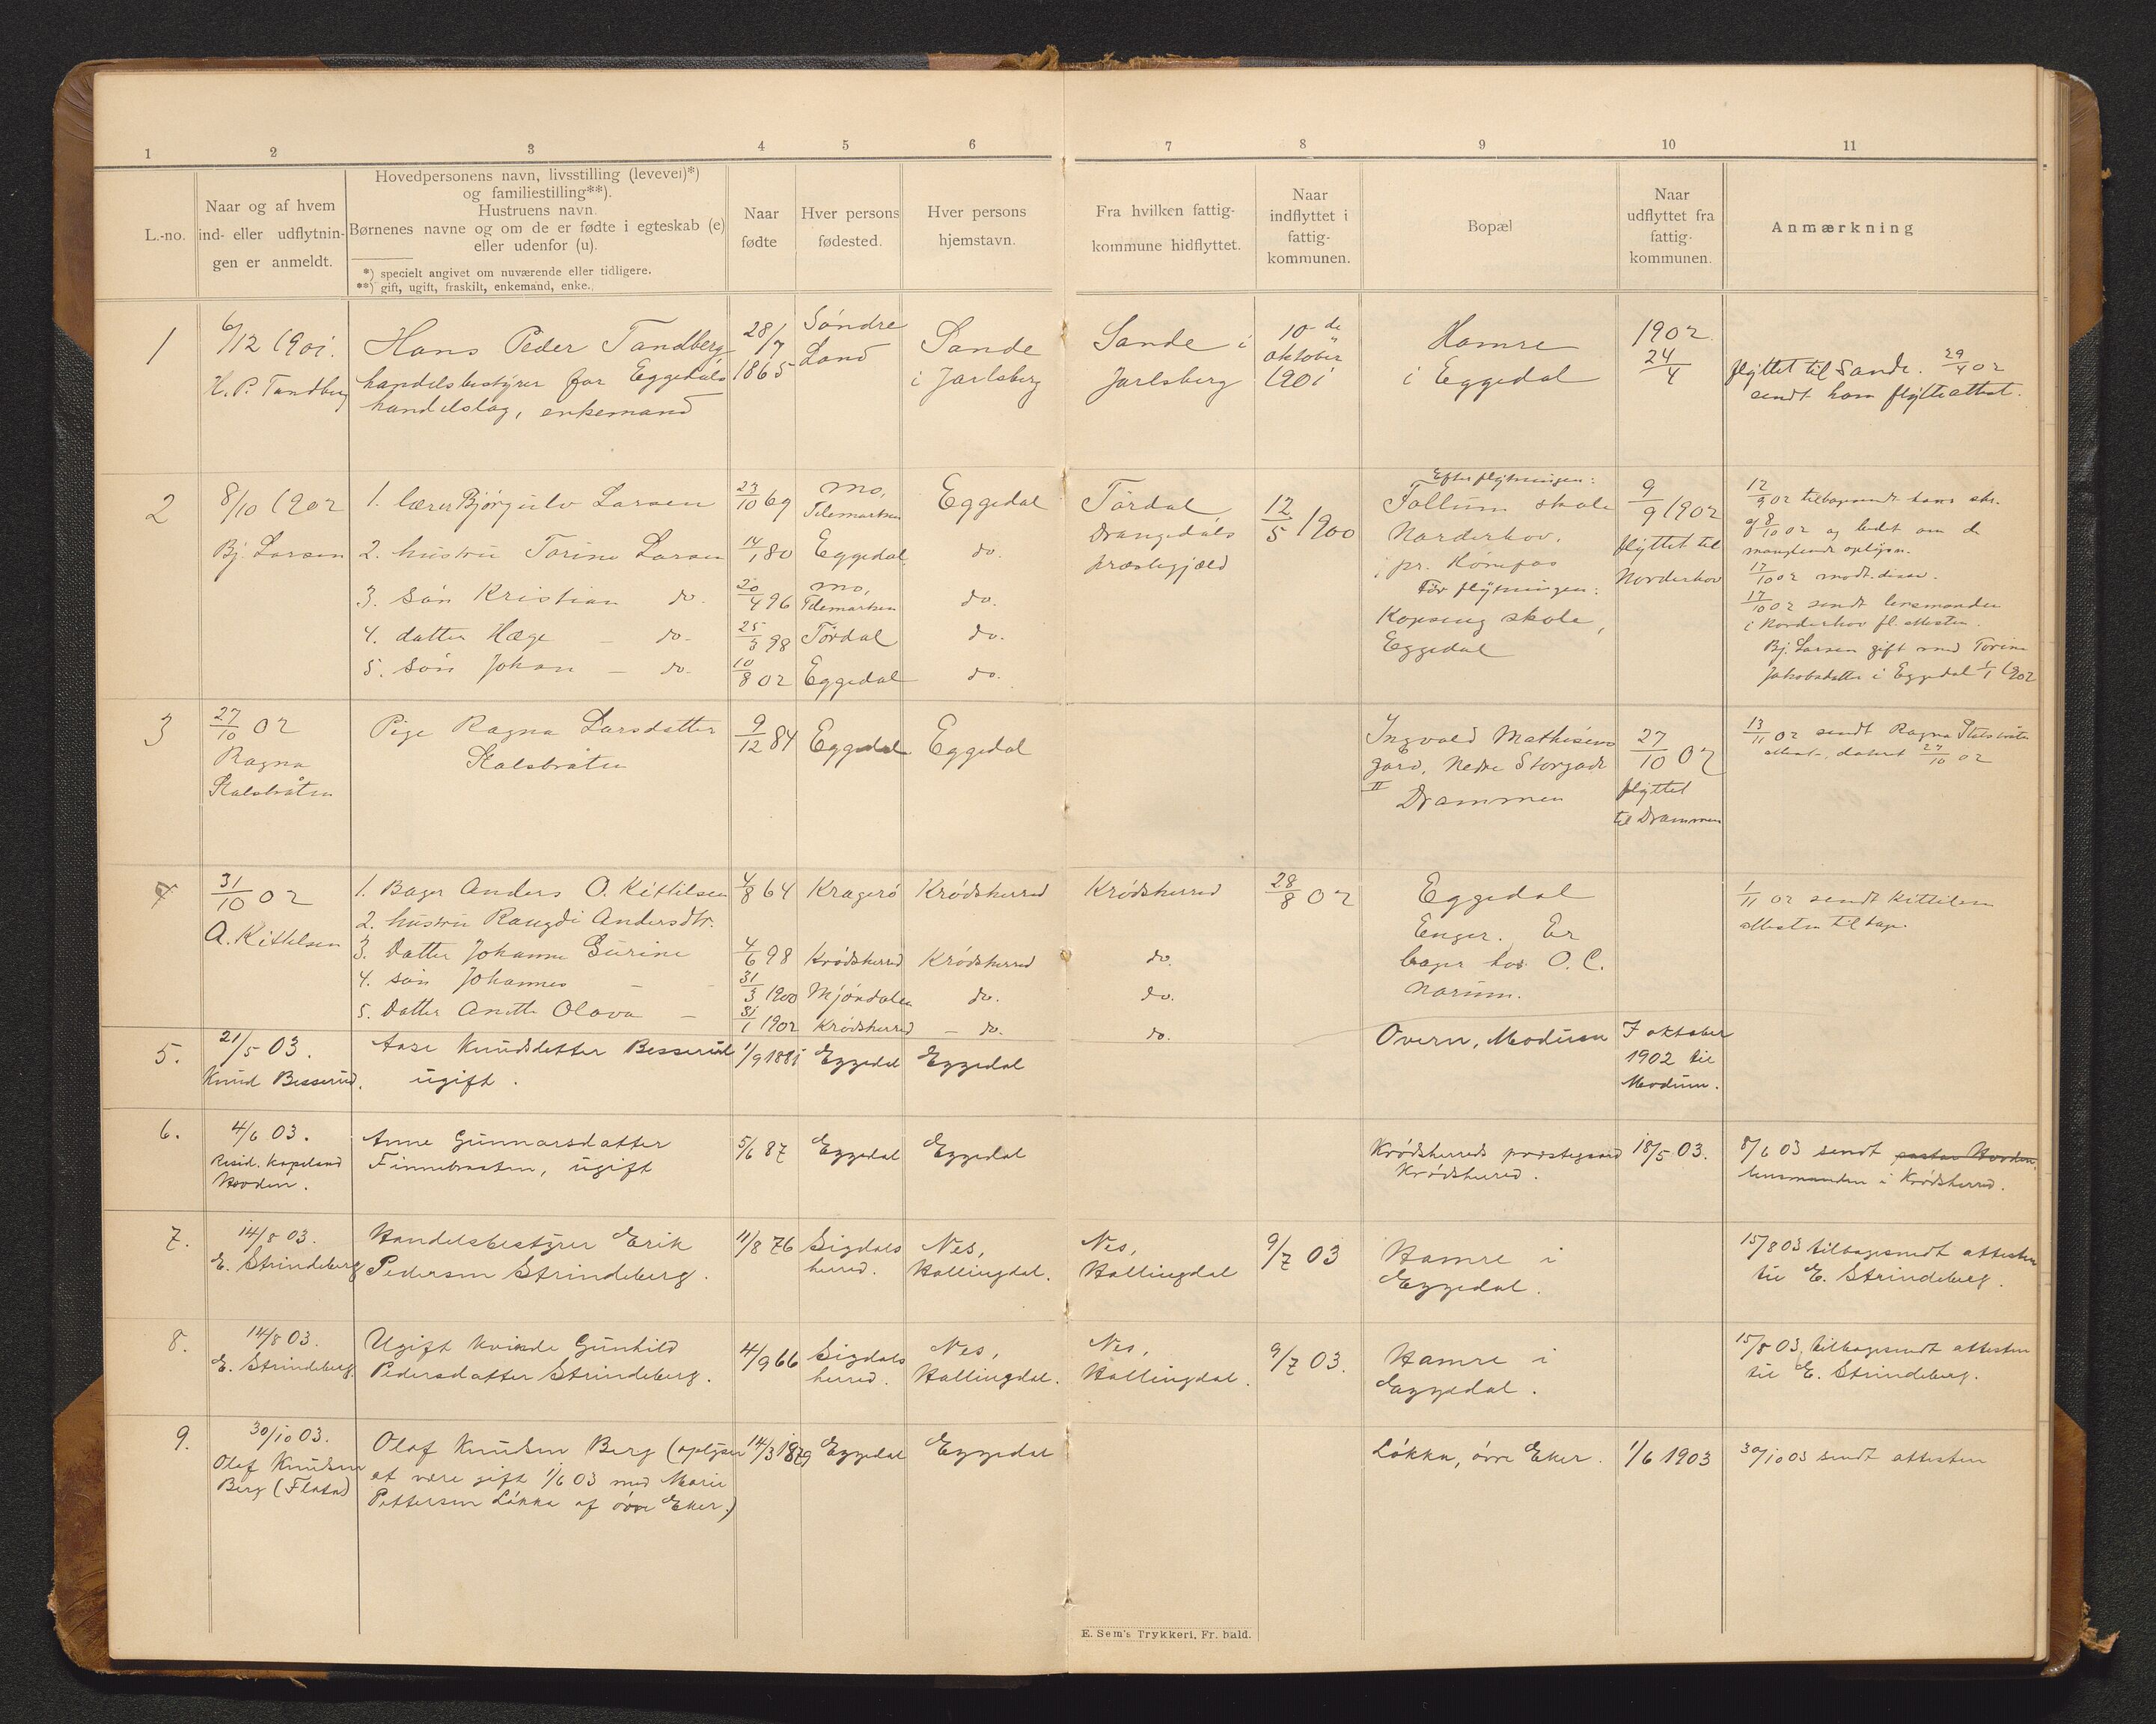 1
2
3
4
5
6
7
8
9
10
11
L.-no.
Naar og af hvem
ind- eller udflytnin-
gen er anmeldt.
Hovedpersonens navn, livsstilling (levevei)*)
og familiestilling**).
Hustruens navn.
Børnenes navne og om de er fødte i egteskab (e)
eller udenfor (u).
*) specielt angivet om nuværende eller tidligere.
**) gift, ugift, fraskilt, enkemand, enke.
Naar
fødte
Hver persons
fødested.
Hver persons
hjemstavn.
Fra hvilken fattig-
kommune hidflyttet.
Naar
indflyttet i
fattig-
kommunen.
Bopæl
Naar
udflyttet fra
fattig-
kommunen.
Anmærkning
1
6/12 1901.
H. P. Tandberg
Hans Peder Tandberg
handelsbestyrer for Eggedals
handelslag, enkemand
28/7
1865
Søndre
Land
Sande
i Jarlsberg
Sande i
Jarlsberg
10-de
oktober
1901
Hamre
i Eggedal
1902
24/4
flyttet til Sande. 29/4 02
sendt ham flytteattest.
2
8/10 1902
Bj. Larsen
1. lærer Bjørgulv Larsen
2. hustru Torine Larsen
3. søn Kristian do.
4. datter Hæge – do.
5. søn Johan – do.
23/10 69
14/1 80
20/4 96
25/3 98
10/8 02
Mo,
Telemarken
Eggedal
Mo,
Telemarken
Tørdal
Eggedal
Eggedal
do.
do.
do.
do.
Tørdal
Drangedals
præstegjæld
12/5 1900
Efter flytningen:
Follum skole
Norderhov,
pr. Hønefos
Før flytningen:
Kopseng skole,
Eggedal
9/9 1902
flyttet til
Norderhov
12/9 02 tilbagesendt hans skr.
af 8/10 02 og bedt om de
manglende oplysn.
17/10 02 modt. disse.
17/10 02 sendt lensmanden
i Norderhov fl. attesten.
Bj. Larsen gift med Torine
Jakobsdatter i Eggedal 1/1 1902
3
27/10 02
Ragna
Stalsbråten
Pige Ragna Larsdatter
Stalsbråten
9/12 84
Eggedal
Eggedal
Ingvald Mathisens
gard, Nedre Storgade
II
Drammen
27/10 02
flyttet
til Drammen
13/11 02 sendt Ragna Stalsbråten
attest, datert 27/10 02
4
31/10 02
A. Kittilsen
1. Bager Anders O. Kittilsen
2. hustru Rangdi Andersdtr.
3. Datter Johanne Gurine
4. søn Johannes – –
5. Datter Anette Olava –
4/8 64
4/6 98
31/3 1900
31/1 1902
Kragerø
Krødsherred
Mjøndalen
Krødsherred
Krødsherred
Krødsherred
do.
– do.
Krødsherred
do.
do.
do.
28/8 02
Eggedal
Enger. Er
bager hos O. C.
Narum.
1/11 02 sendt Kittilsen
attesten tilbage.
5.
21/5 03.
Knud Besserud.
Aase Knudsdatter Besserud
ugift.
1/9 1881
Eggedal
Eggedal
Overn, Modum
I oktober
1902 til
Modum.
6.
4/6 03.
Resid. kapeland
Hovden.
Anne Gunnarsdatter
Finnebraaten, ugift
5/6 87
Eggedal
Eggedal
Krødsherreds prestegaard
Krødsherred.
18/5 03.
8/6 03 sendt pastor Hovden
lensmanden i Krødsherred.
7.
14/8 03.
E. Strindeberg
Handelsbestyrer Erik
Pedersen Strindeberg.
11/8 76
Sigdals
herred.
Nes,
Hallingdal.
Nes,
Hallingdal
9/7 03
Hamre i
Eggedal.
15/8 03 tilbagesendt attesten
til E. Strindeberg.
8.
14/8 03.
E. Strindeberg.
Ugift kvinde Gunhild
Pedersdatter Strindeberg.
4/9 66
Sigdals
herred.
Nes,
Hallingdal.
Nes,
Hallingdal.
9/7 03.
Hamre i
Eggedal.
15/8 03, tilbagesendt attesten
til E. Strindeberg.
9.
30/10 03.
Olaf Knudsen
Berg (Flata)
Olaf Knudsen Berg (oplyser
at være gift 1/6 03 med Marie
Pettersen Løkka af øvre Eker.)
14/3 1879
Eggedal
Eggedal
Løkka, øvre Eker.
1/6 1903
30/10 03 sendt attesten
E. Sem's Trykkeri, Fr. hald.